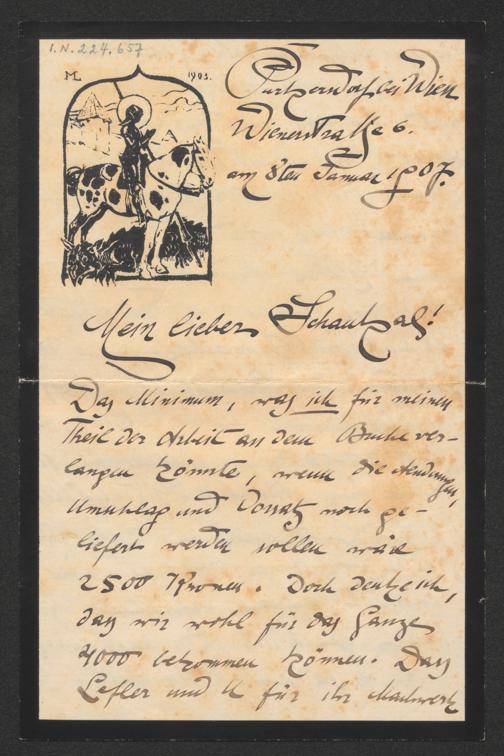 I.N. 224.657
ML 1903.
Purkersdorf bei Wien
Wienerstraße 6.
am 8ten Januar 1907.
Mein lieber Schaukal!
Das Minimum, was ich für meinen
Theil der Arbeit an dem Buche ver-
langen könnte, wenn die Aenderungen,
Umschlag und Vorsatz noch ge-
liefert werden sollen wäre
2500 Kronen. Doch denke ich,
das wir wohl für das Ganze
4000 bekommen können. Das
Lefler und U für ihr Machwerk